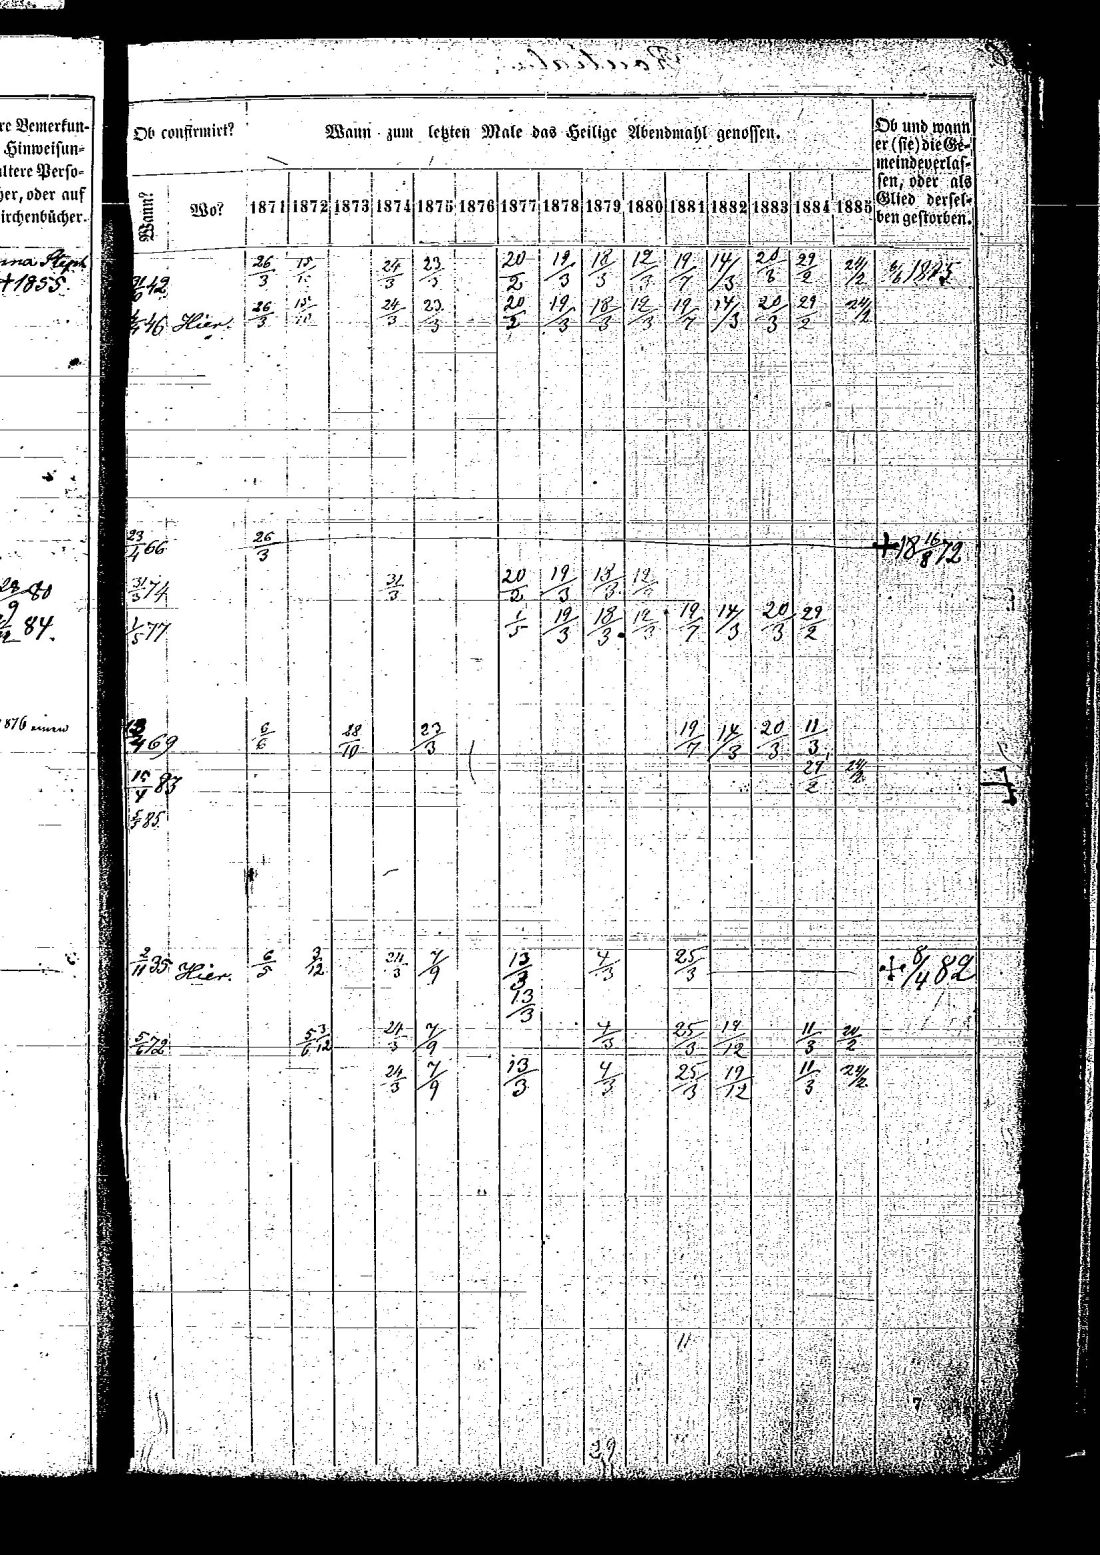 re Bemerkun-
Hinweisun-
ältere Perso-
her, oder auf
irchenbücher.
Ob confirmirt?
Wann zum letzten Male das Heilige Abendmahl genossen.
Ob und wann
er (sie) die Ge-
meinde verlas-
sen, oder als
Glied dersel-
ben gestorben.
Wann?
Wo?
1871 1872 1873 1874 1875 1876 1877 1878 1879 1880 1881 1882 1883 1884 1885
+1855.
42 26/3 24/3 23/3 20/2 19/3 18/3 12/3 19/7 14/3 20/3 29/2 24/2
46 Hier. 26/3 15/10 24/3 23/3 20/2 19/3 18/3 12/3 19/7 14/3 20/3 29/2 24/2
23/4 66 26/3 +18 16/8 72
80 31/3 74 31/3 20/2 19/3 18/3 12/3
84. 1/5 77 1/5 19/3 18/3 12/3 19/7 14/3 20/3 29/2
1876 einen
69 6/6 28/10 23/3 19/7 14/3 20/3 11/3
15/4 83 29/2 24/2
85
2/11 35 Hier. 6/5 3/12 24/3 7/9 13/3 4/3 25/3 + 8/4 82
13/3
5/6 72 5/6 3/12 24/3 7/9 4/3 25/3 19/12 11/3 24/2
24/3 7/9 13/3 4/3 25/3 19/12 11/3 24/2
11
7
29